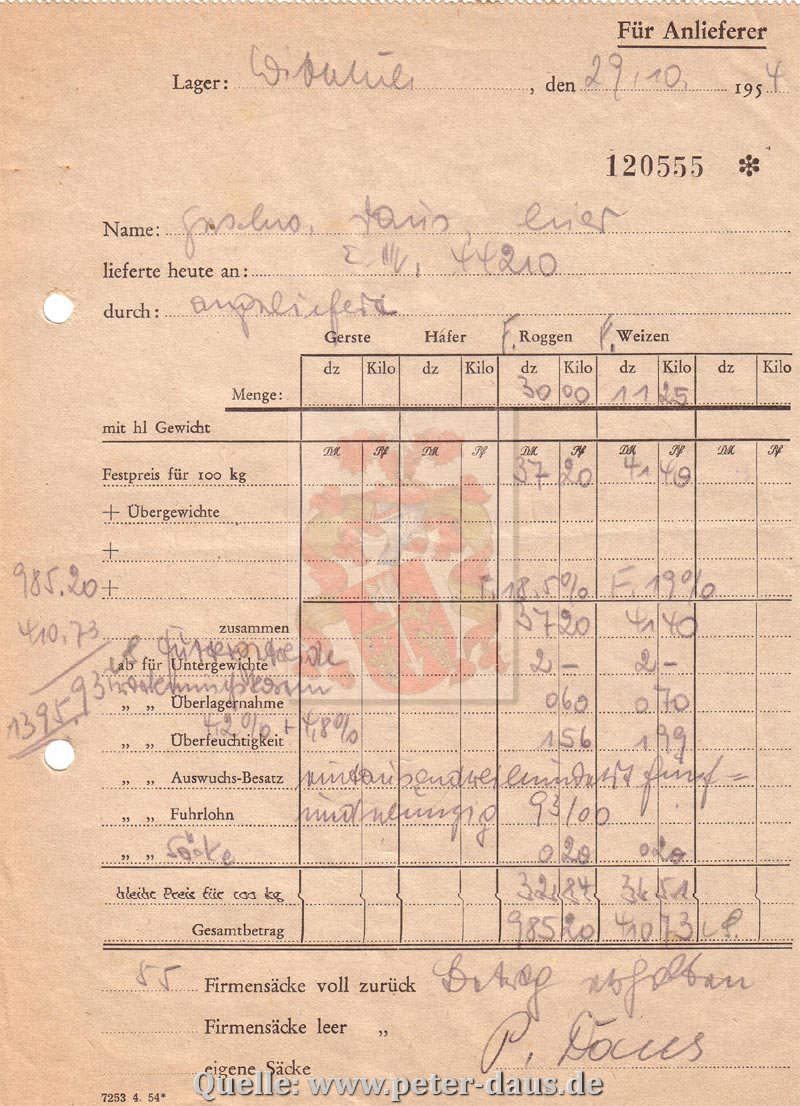 Für Anlieferer
Lager: , den 29.10. 1954
120555 *
Name: Daus,
lieferte heute an: 44210
durch: angeliefert
Gerste Hafer F. Roggen F. Weizen
dz Kilo dz Kilo dz Kilo dz Kilo dz Kilo
Menge: 30 00 11 25
mit hl Gewicht
DM Pf DM Pf DM Pf DM Pf DM Pf
Festpreis für 100 kg 37 20 41 40
+ Übergewichte
+
985.20 + F. 18,5% F. 19%
410,73 zusammen 37 20 41 40
ab für Untergewichte 2 – 2 –
1395.93
„ „ Überlagernahme 0 60 0 70
4,2% + 4,8%
„ „ Überfeuchtigkeit 1 56 1 99
„ „ Auswuchs-Besatz eintausenddreihundert fünf =
„ „ Fuhrlohn undneunzig 93/00
„ „ Säcke 0 20 0 20
bleibt Preis für 100 kg 32 84 36 51
Gesamtbetrag 985 20 410 73
55 Firmensäcke voll zurück Betrag erhalten
Firmensäcke leer „ P. Daus
eigene Säcke
Quelle: www.peter-daus.de
7253 4. 54*